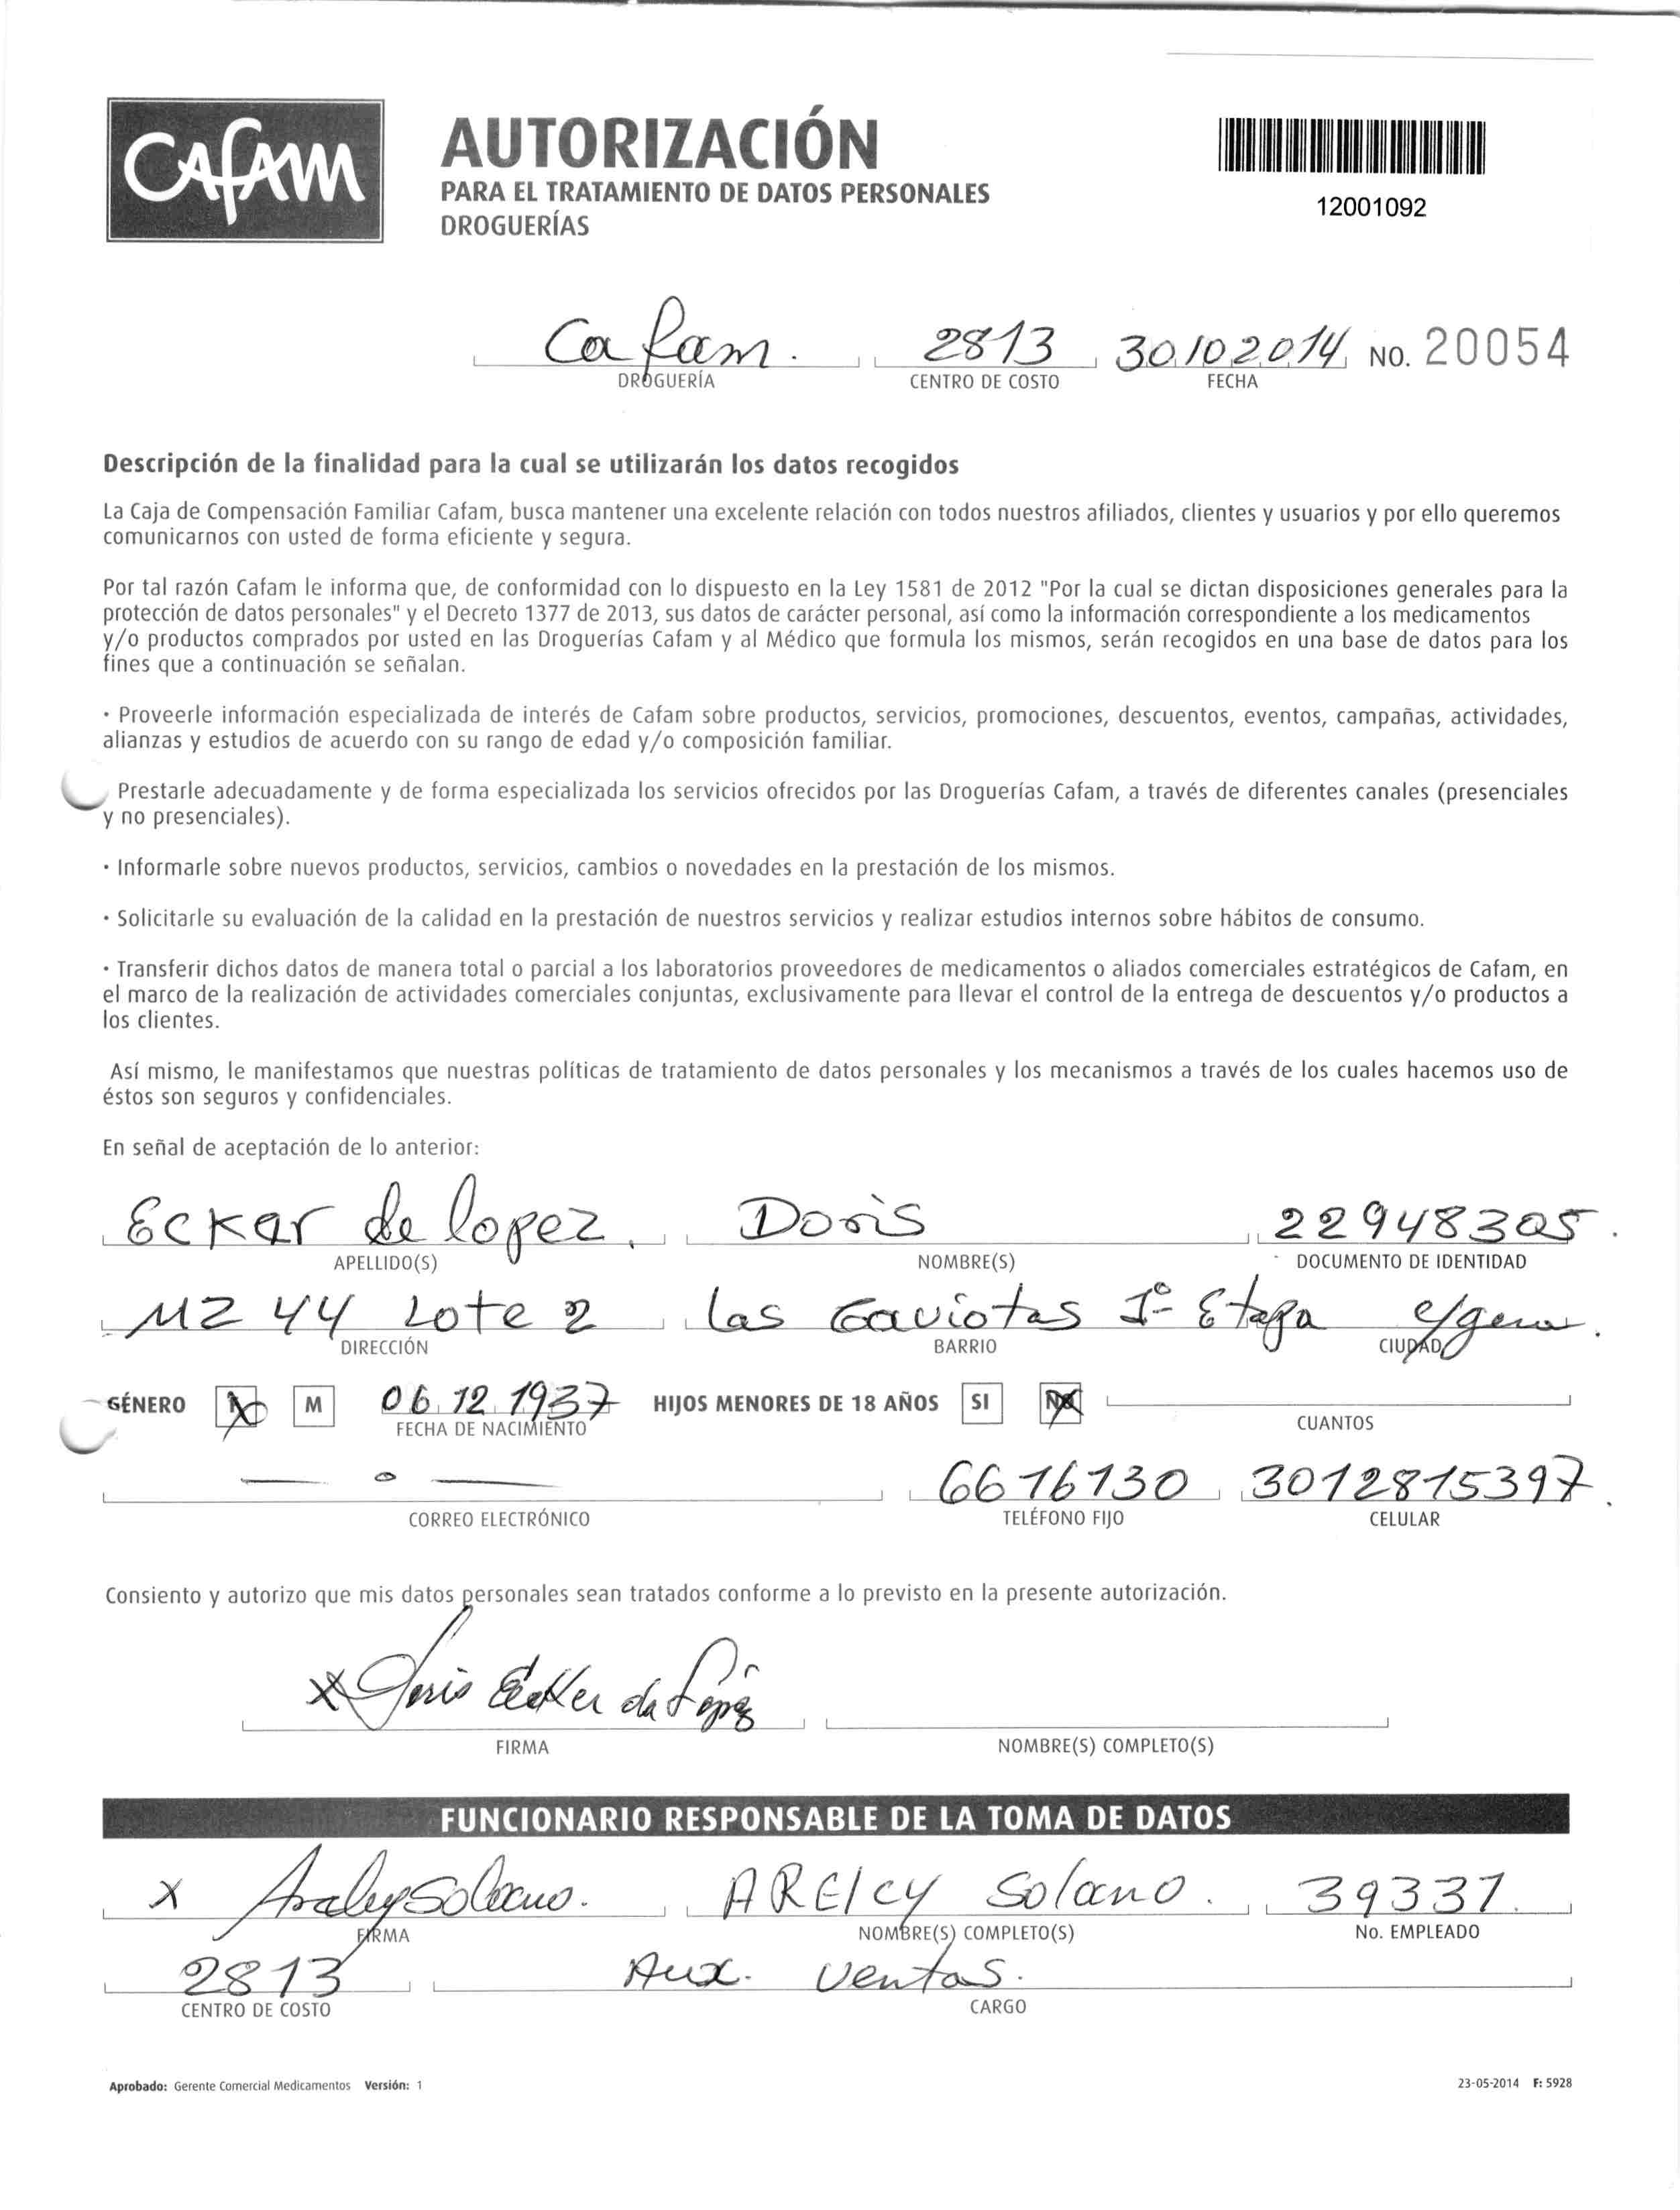 CAFAM
AUTORIZACIÓN
PARA EL TRATAMIENTO DE DATOS PERSONALES
DROGUERÍAS
12001092
Cafam. 2813 30 10 2014 NO. 20054
DROGUERÍA CENTRO DE COSTO FECHA
Descripción de la finalidad para la cual se utilizarán los datos recogidos
La Caja de Compensación Familiar Cafam, busca mantener una excelente relación con todos nuestros afiliados, clientes y usuarios y por ello queremos
comunicarnos con usted de forma eficiente y segura.
Por tal razón Cafam le informa que, de conformidad con lo dispuesto en la Ley 1581 de 2012 "Por la cual se dictan disposiciones generales para la
protección de datos personales" y el Decreto 1377 de 2013, sus datos de carácter personal, así como la información correspondiente a los medicamentos
y/o productos comprados por usted en las Droguerías Cafam y al Médico que formula los mismos, serán recogidos en una base de datos para los
fines que a continuación se señalan.
· Proveerle información especializada de interés de Cafam sobre productos, servicios, promociones, descuentos, eventos, campañas, actividades,
alianzas y estudios de acuerdo con su rango de edad y/o composición familiar.
Prestarle adecuadamente y de forma especializada los servicios ofrecidos por las Droguerías Cafam, a través de diferentes canales (presenciales
y no presenciales).
· Informarle sobre nuevos productos, servicios, cambios o novedades en la prestación de los mismos.
· Solicitarle su evaluación de la calidad en la prestación de nuestros servicios y realizar estudios internos sobre hábitos de consumo.
· Transferir dichos datos de manera total o parcial a los laboratorios proveedores de medicamentos o aliados comerciales estratégicos de Cafam, en
el marco de la realización de actividades comerciales conjuntas, exclusivamente para llevar el control de la entrega de descuentos y/o productos a
los clientes.
Así mismo, le manifestamos que nuestras políticas de tratamiento de datos personales y los mecanismos a través de los cuales hacemos uso de
éstos son seguros y confidenciales.
En señal de aceptación de lo anterior:
Eckar de lopez. Doris 22948305.
APELLIDO(S) NOMBRE(S) DOCUMENTO DE IDENTIDAD
MZ 44 Lote 2 las Gaviotas 1º Etapa c/gena.
DIRECCIÓN BARRIO CIUDAD
GÉNERO X M 06 12 1937 HIJOS MENORES DE 18 AÑOS SI NO
FECHA DE NACIMIENTO CUANTOS
— o — 6616130 3012815397.
CORREO ELECTRÓNICO TELÉFONO FIJO CELULAR
Consiento y autorizo que mis datos personales sean tratados conforme a lo previsto en la presente autorización.
x Doris Ecker de López
FIRMA NOMBRE(S) COMPLETO(S)
FUNCIONARIO RESPONSABLE DE LA TOMA DE DATOS
x Aralcy Solano. ARElCY Solano. 39331.
FIRMA NOMBRE(S) COMPLETO(S) No. EMPLEADO
2813 Aux. Ventas.
CENTRO DE COSTO CARGO
Aprobado: Gerente Comercial Medicamentos Versión: 1 23-05-2014 F: 5928